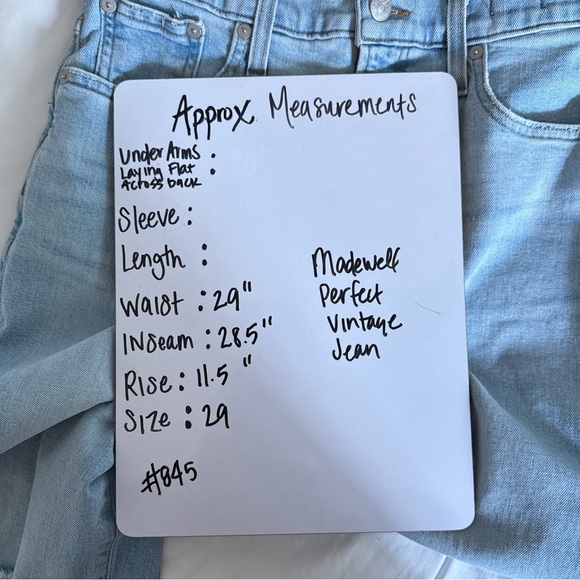 Approx. Measurements
Under Arms :
Laying Flat :
Across back
Sleeve :
Length :
Waist : 29"
Inseam : 28.5"
Rise : 11.5"
Size : 29
#845
Madewell
Perfect
Vintage
Jean